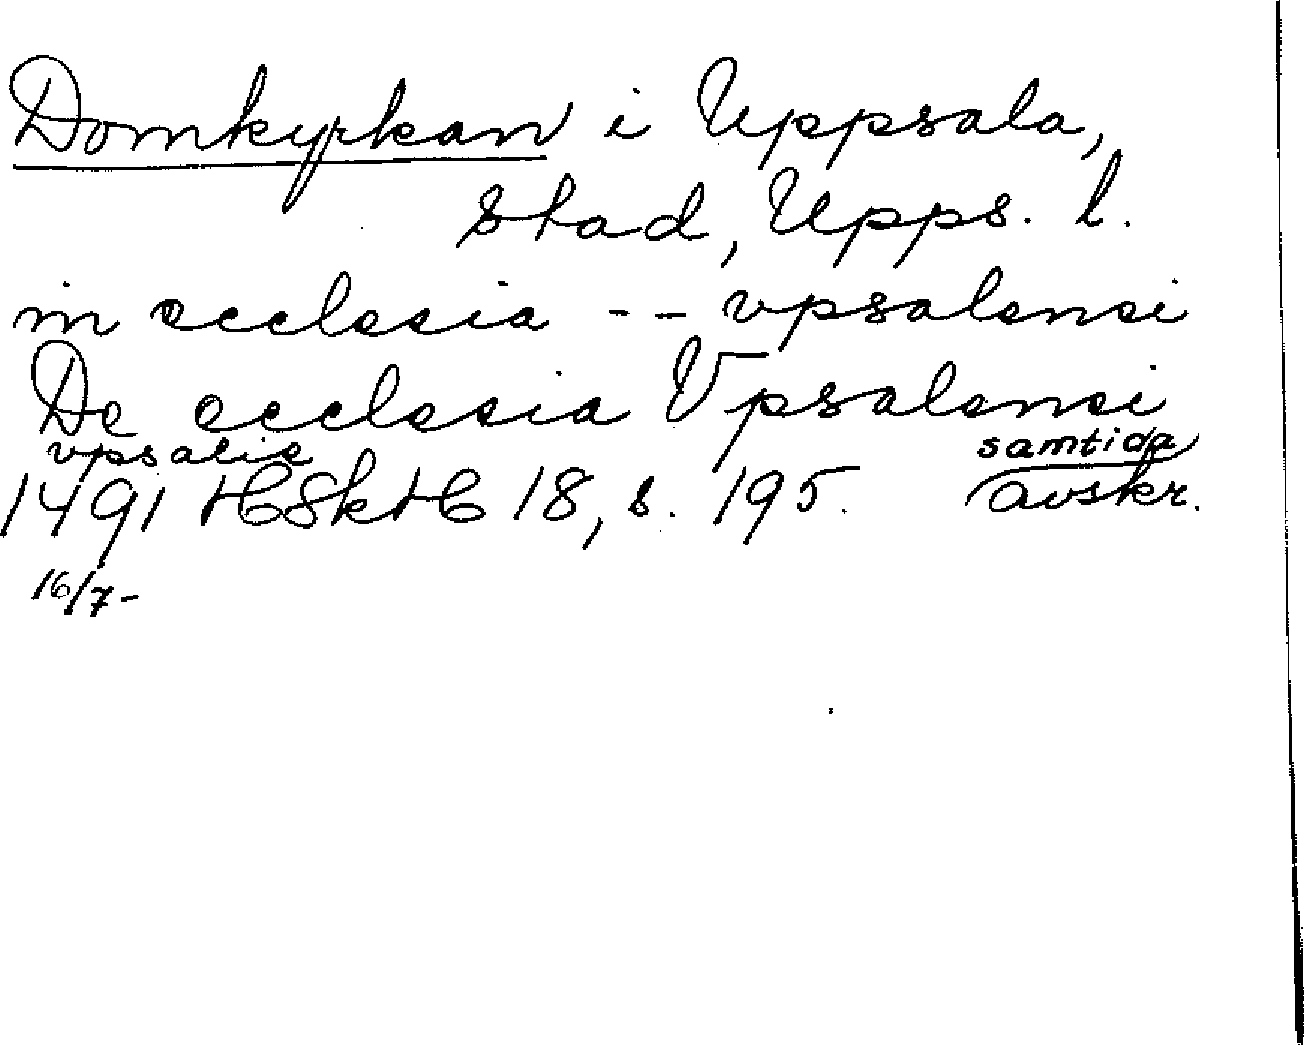 Domkyrkan i Uppsala,
stad, Upps. l.
in ecclesia -- vpsalensi
De ecclesia Vpsalensi
vpsalie samtida
1491 HSkH 18, s. 195. avskr.
16/7-